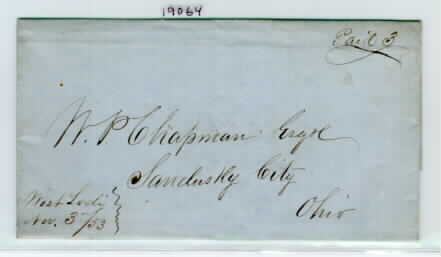 19064
Paid 3
W. P. Chapman Esqr
Sandusky City
Ohio
West Lodi
Nov. 3/53